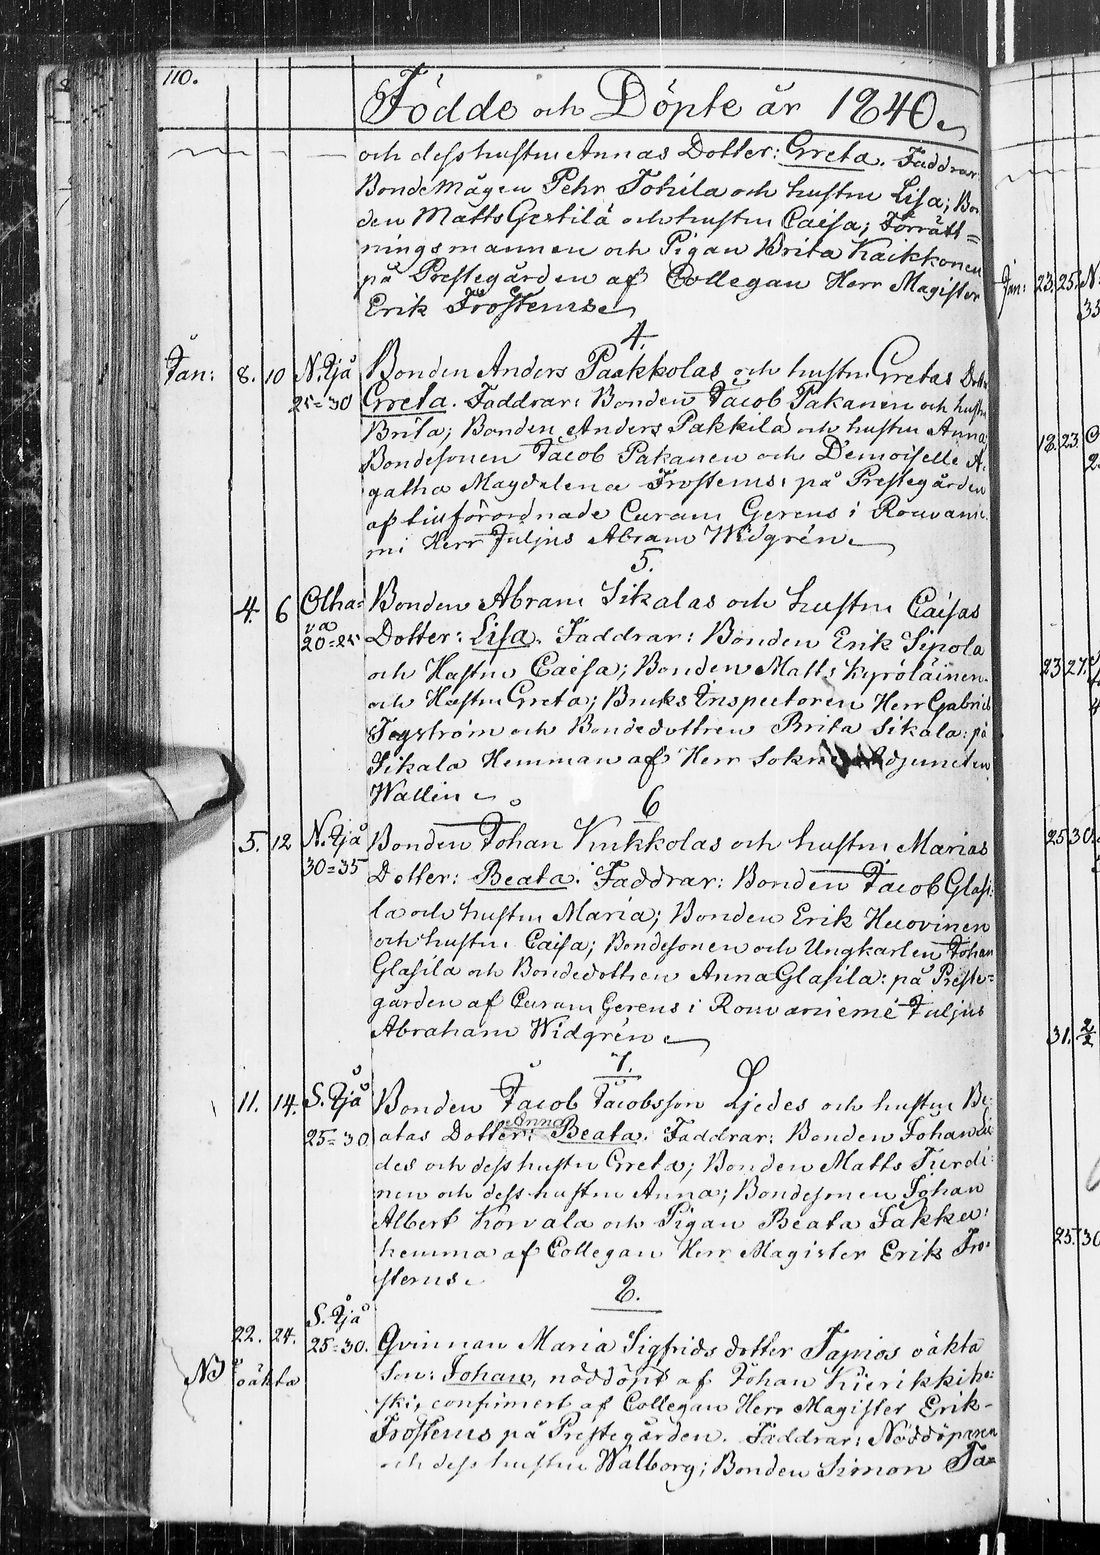 110.
Födde och Döpte år 1840
och dess hustru Annas Dotter: Greta. Faddrar:
Bonde Mågen Pehr Tohila och hustru Lisa; Bon
den Matts Gestilä och hustru Caisa; Förrätt=
ningsmannen och Pigan Brita Kaikkonen
på Prestegården af Collegan Herr Magister
Erik Frosterus
4.
Jan: 8. 10 N. Ijå Bonden Anders Paakkolas och hustru Gretas Dott:
25=30 Greta. Faddrar: Bonden Jacob Pakanen och hustru
Brita; Bonden Anders Pakkila och hustru Anna
Bondesonen Jacob Pakanen och Demoiselle A-
gatha Magdalena Frosterus: på Prestegården
af tillförordnade Curam Gerens i Rouvanie-
mi Herr Juljus Abram Widgrén
5.
4. 6 Olha= Bonden Abram Sikalas och hustru Caisas
va
20=25 Dotter: Lisa. Faddrar: Bonden Erik Sipola
och Hustru Caisa; Bonden Matts Kyröläinen
och Hustru Greta; Bruks Inspectoren Herr Gabriel
Fogström och Bondedottren Brita Sikala: på
Sikala Hemman af Herr Sokne Adjuncten
Wallin
6
5. 12 N. Ijå Bonden Johan Kukkolas och hustru Marias
30=35 Dotter: Beata. Faddrar: Bonden Jacob Glasi:
la och hustru Maria; Bonden Erik Huovinen
och hustru Caisa; Bondesonen och Ungkarlen Johan
Glasila och Bondedottren Anna Glasila: på Preste=
gården af Curam Gerens i Rouvaniemi Juljus
Abraham Widgrén
7.
11. 14. S. Ijå Bonden Jacob Jacobsson Ljedes och hustru Be-
Anna
25=30 atas Dotter: Beata. Faddrar: Bonden Johan Li
des och dess hustru Greta; Bonden Matts Turdi:
nen och dess hustru Anna; Bondesonen Johan
Albert Korvala och Pigan Beata Jakku:
hemma af Collegan Herr Magister Erik Fro-
sterus.
8.
S. Ijå
22. 24. 25=30. Qvinnan Maria Sigfrids dotter Tapios oäkta
NB oäkta Son: Johan, nöddöpt af Johan Kierikkiko:
ski, confirmert af Collegan Herr Magister Erik
Frosterus på Prestegården. Faddrar: Nöddöparen
och dess hustru Walborg; Bonden Simon Ta=
Jan: 23. 25. N.
18. 23
23 27.
25 30.
31. 2/2
25. 30